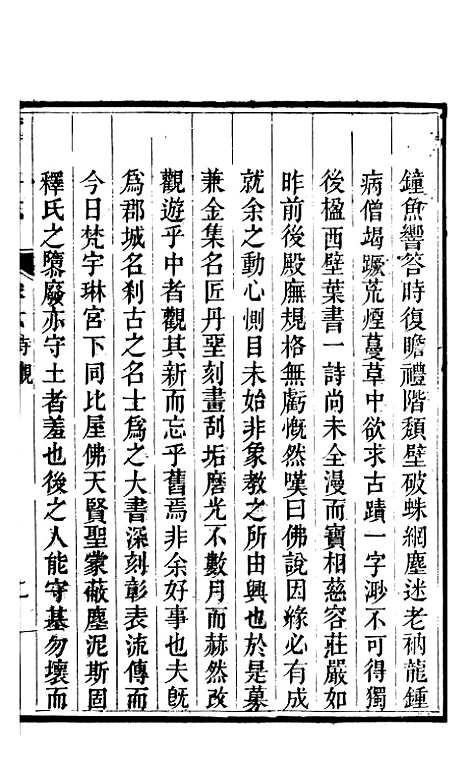 鐘魚響答時復瞻禮階頹壁破蛛網塵迷老衲龍鍾
病僧竭蹶荒煙蔓草中欲求古蹟一字渺不可得獨
後楹西壁葉書一詩尚未全漫而寶相慈容莊嚴如
昨前後殿廡規格無虧慨然嘆曰佛說因緣必有成
就余之動心惻目未始非象教之所由興也於是募
兼金集名匠丹堊刻畫刮垢磨光不數月而赫然改
觀遊乎中者觀其新而忘乎舊焉非余好事也夫旣
爲郡城名刹古之名士爲之大書深刻彰表流傳而
今日梵宇琳宮下同比屋佛天賢聖蒙蔽塵泥斯固
釋氏之隳廢亦守土者羞也後之人能守基勿壞而
寺觀